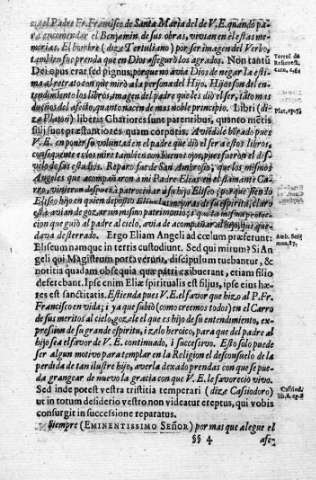 el Padre Fr. Francisco de Santa Maria del de V.E. quando pa-
ra encomendar el Benjamin de sus obras, vivian en èl estas me-
morias. El hombre (dize Tertuliano) por ser imagen del Verbo,
tambien fue prenda que en Dios assegurò los agrados. Non tantũ
Dei opus erat, sed pignus, porque no avia Dios de negar la esti-
ma al retrato con que mirò a la persona del Hijo. Hijos son del en-
tendimiento los libros, imagen del padre que les diò el ser, i tã mas
dueños del afecto, quanto nacen de mas noble principio. Libri (di-
ze Platon) libentius Chariores sunt parentibus, quanto mẽtis
filij sunt præstantiores quam corporis. Aviedole hõrado pues
V.E. en poner su voluntad en el padre que diò el ser a estos libros,
consequente es los mire tambien con buenos ojos, pues fueron el
de sus estudios. Reparo fue de San Ambrosio, que los mismos
Angeles que acompañaron a mi Padre Elias en el
vinieron despues à patrocinar à su hijo Eliseo
Eliseo hijo en quien depositò Elias
avia de gozar un mismo patrimonio; i que la misma protec-
cion que guiò al padre al cielo, avia de acompañar al hijo que que-
dava desterrado. Ergo Eliam Angeli ad cælum præferunt:
Eliseum namque in terris custodiunt. Sed qui mirum? Si An-
geli qui Magistrum portaverunt, discipulum tuebantur, &
notitia quadam obsequia quæ patri exibuerant, etiam filio
deferebant. Ipse enim Eliæ spiritualis est filius, ipse eius hæ-
res est sanctitatis. Estienda pues V.E. el favor que hizo al P. Fr.
Francisco en vida; i ya que subiò (como creemos todos) en el Carro
de sus meritos al cielo, goze de el que es hijo de su entendimiento, ex-
pression de su grande espiritu, i zelo heroico, para que del padre al
hijo sea el favor de V.E. continuado, i sucessivo. Esto solo puede
ser algun motivo para templar en la Religion el desconsuelo de la
perdida de tan ilustre hijo, averla dexado prendas con que se pue-
da grangear de nuevo la gracia con que V.E. le favorecio vivo.
Sed inde potest vestra tristitia temperari (dize Cassiodoro)
ut in totum desiderio vestro non videatur ereptus, qui vobis
consurgit in successione reparatus.
Siempre (EMINENTISSIMO SEÑOR) por mas que alegue el
§§ 4